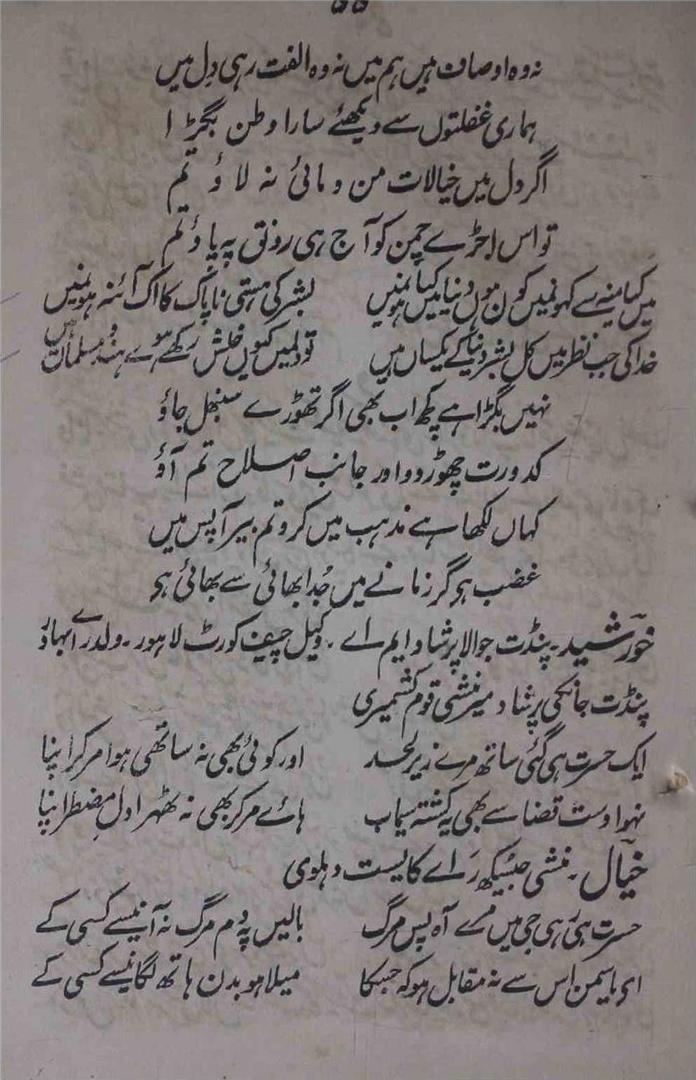 ۵۵
نہ وہ اوصاف ہیں ہم میں نہ وہ الفت رہی دل میں
ہماری غفلتوں سے دیکھئے سارا وطن بگڑا
اگر دل میں خیالات من و مائی نہ لاؤ تم
تو اس اجڑے چمن کو آج ہی رونق پہ پاؤ تم
بشر کی ہستی ناپاک کا اک آئنہ ہوں میں
خدا کی جب نظر میں کل بشر دنیا کے یکساں ہیں تو دلمیں کیوں خلش رکھے ہوے ہندو مسلماں ہیں
نہیں بگڑا ہے کچھ اب بھی اگر تھوڑے سنبھل جاؤ
کدورت چھوڑ دو اور جانب اصلاح تم آؤ
کہاں لکھا ہے مذہب میں کرو تم بیر آپس میں
غضب ہو گر زمانے میں جدا بھائی سے بھائی ہو
خورشید۔ پنڈت جوالا پرشاد ایم اے۔ وکیل چیف کورٹ لاہور۔ ولد راے بہادر
پنڈت جانکی پرشاد میر منشی قوم کشمیری
ایک حسرت ہی گئی ساتھ مرے زیر لحد اور کوئی بھی نہ ساتھی ہوا مر کر اپنا
نہوا دست قضا سے بھی یہ کشتہ سیماب ہائے مر کر بھی نہ ٹھہرا دل مضطر اپنا
خیال۔ منشی جیسکھ رائے کایست دہلوی
حسرت ہی رہی جی میں مرے آہ پس مرگ بالیں پہ دم مرگ نہ آنیسے کسی کے
اے یاسمن اس سے نہ مقابل ہو کہ جسکا میلا ہو بدن ہاتھ لگانیسے کسی کے